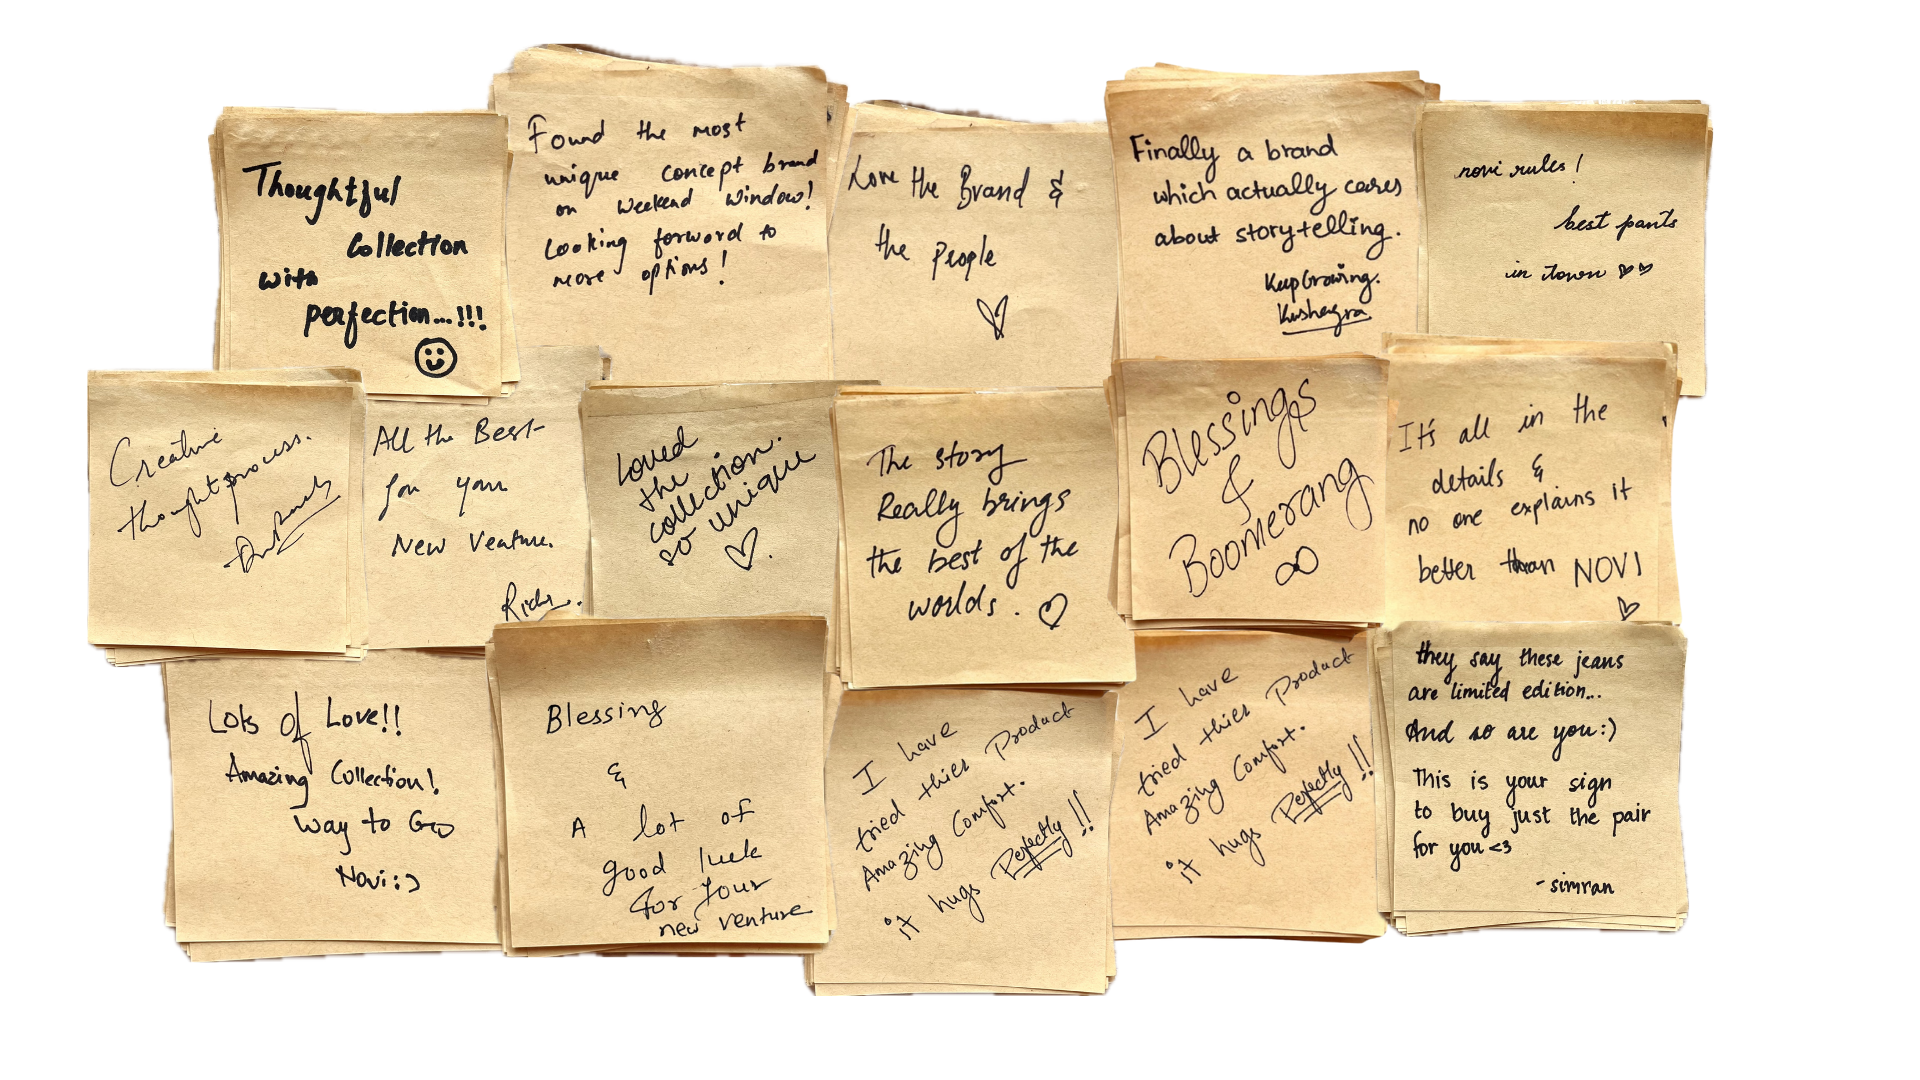 Thoughtful
Collection
with
perfection...!!!
Found the most
unique concept brand
on Weekend Window!
Looking forward to
more options!
Love the Brand &
the People
Finally a brand
which actually cares
about storytelling.
Keep Growing.
Kushagra
novi rules!
best pants
in town
Creative
thought process.
All the Best
for your
New Venture.
Loved
the
collection.
so unique
The story
Really brings
the best of the
worlds.
Blessings
&
Boomerang
∞
It's all in the
details &
no one explains it
better than NOVI
Lots of Love!!
Amazing Collection!
Way to Go
Novi:)
Blessing
&
A lot of
good luck
For Your
new venture
I have
tried thies Product
Amazing Comfort.
it hugs Perfectly!!
I have
tried thies Product
Amazing Comfort.
it hugs Perfectly!!
they say these jeans
are limited edition...
And so are you:)
This is your sign
to buy just the pair
for you <3
- simran